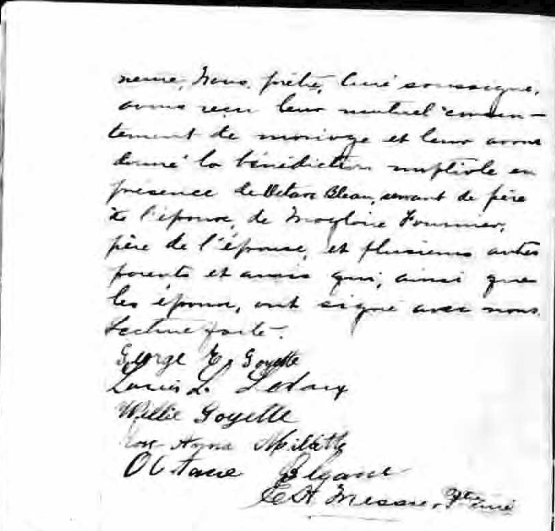 neuve, Nous, prêtre, curé soussigné,
avons reçu leur mutuel consen-
tement de mariage et leur avons
donné la bénédiction nuptiale en
présence de Octave Bleau, servant de père
à l'époux, de Magloire Fournier,
père de l'épouse, et plusieurs autres
parents et amis qui, ainsi que
les époux, ont signé avec nous.
Lecture faite.
George E. Goyette
Louis L. Ledoux
Willie Goyette
Rose Anna Millette
Octave
Messier, Ptre curé